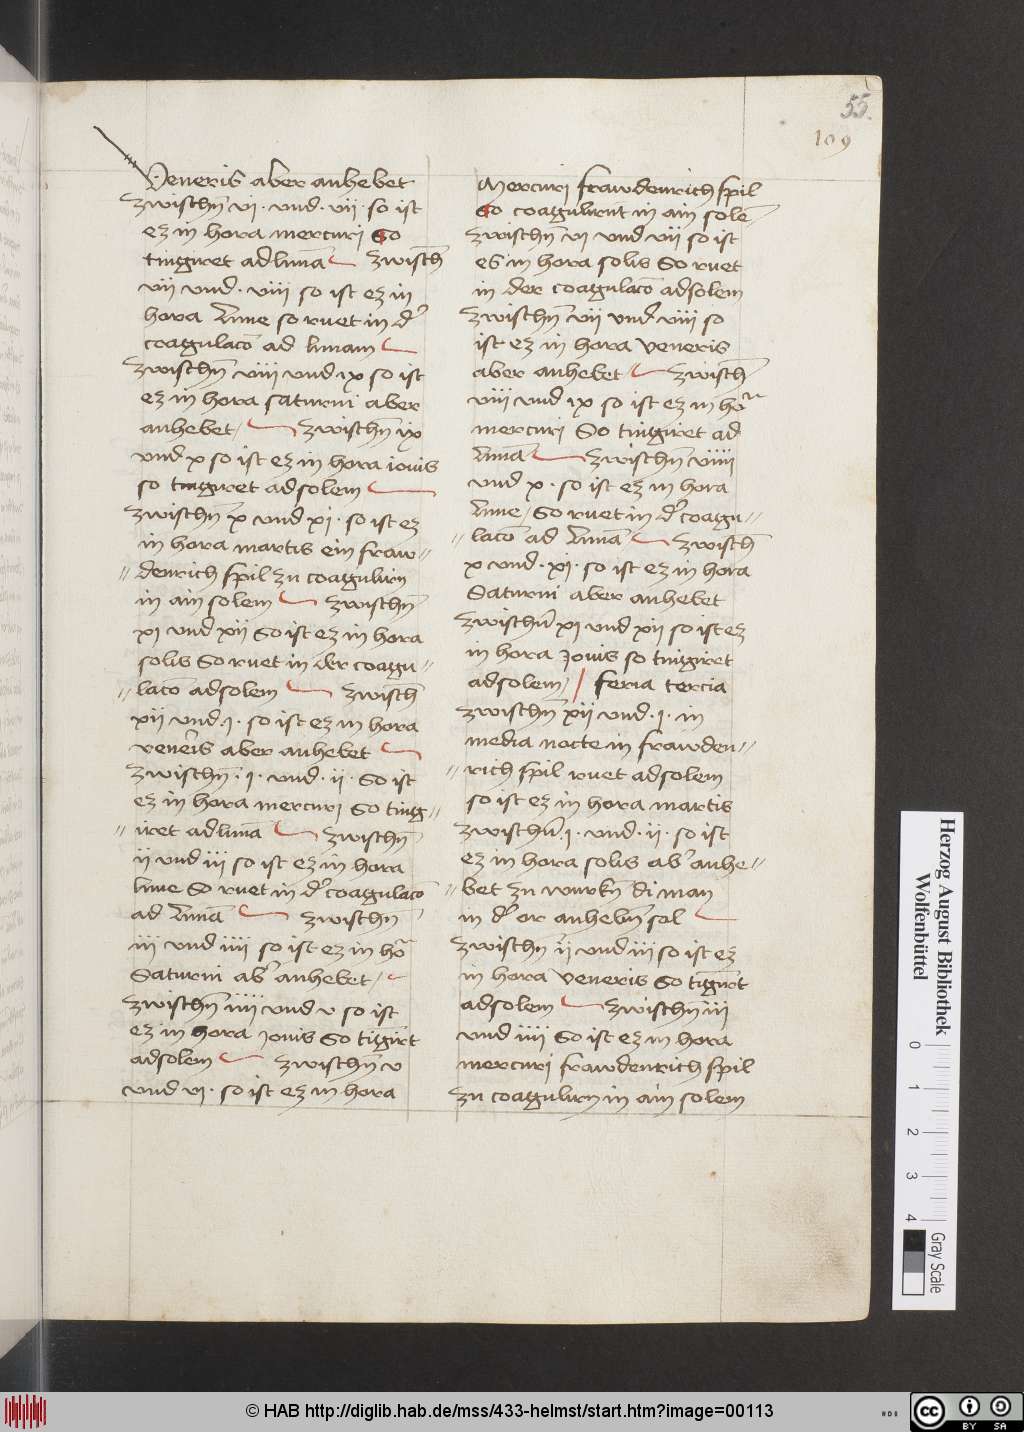 55.
109
Veneris aber anhebet
zwischn̄ vi · vnd · vii · so ist
ez in hora mercurj So
tinguret ad lunā zwischn̄
vii vnd · viii so ist ez in
hora lune so ruet in d'
coagulacō ad lunam
zwischn̄ viii vnd ix so ist
ez in hora saturni aber
anhebet zwischn̄ ix
vnd x so ist ez in hora iouis
so tinguret ad solem
zwischn̄ x vnd xi · so ist ez
in hora martis ein fraw〃
〃denrich spil zu coagulirn
in ain solem zwischn̄
xi vnd xii So ist ez in hora
solis So ruet in der coagu〃
〃lacō ad solem zwischn̄
xii vnd · i · so ist ez in hora
veneris aber anhebet
zwischn̄ · i · vnd · ii · So ist
ez in hora mercurj So ting〃
〃iret ad lunā zwischn̄
ii vnd iii so ist ez in hora
lune So ruet in d' coagulacō
ad lunā zwischn̄
iii vnd iiii so ist ez in ho^a
Saturni ab' anhebet
zwischn̄ iiii vnd v so ist
ez in hora Jouis So tīgirt
ad solem zwischn̄ v
vnd vi · so ist ez in hora
Mercurj frawdenrich spil
So coagulirnt in ain solē
zwischn̄ vi vnd vii so ist
es in hora solis So ruet
in der coagulacō ad solem
zwischn̄ vii vnd viii so
ist ez in hora veneris
aber anhebet zwischn̄
viii vnd ix so ist ez in ho^a
mercurj So tinguret ad
lunā zwischn̄ viiii
vnd x · so ist ez in hora
lune / So ruet in d' coagu〃
〃lacō ad lunā zwischn̄
x vnd · xi · so ist ez in hora
Saturni aber anhebet
zwischn̄ xi vnd xii so ist ez
in hora Jouis so tinguret
ad solem / feria tercia
zwischn̄ xii vnd · i · in
media nocte in frawden〃
〃rich spil ruet ad solem
so ist ez in hora martis
zwischn̄ · i · vnd · ii · so ist
ez in hora solis ab' anhe〃
〃bet zu wurkn̄ di man
in d' or anhebn̄ sol
zwischn̄ ii vnd iii so ist ez
in hora veneris So tīguret
ad solem zwischn̄ iii
vnd iiii So ist ez in hora
mercurj frawdenrich spil
zu coagulirn in ain solem
Herzog August Bibliothek
Wolfenbüttel
0
1
2
3
4
Gray Scale
© HAB http://diglib.hab.de/mss/433-helmst/start.htm?image=00113
cc BY SA